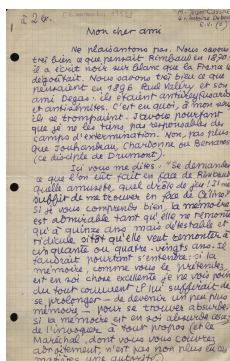 Mon cher ami
Ne plaisantons pas. Nous savons
très bien ce que pensait Rimbaud en 1870.
il a écrit noir sur blanc que la France le
dégoûtait. Nous savons très bien ce que
pensaient en 1896 Paul Valéry et son
ami Degas. ils étaient antidreyfusards
et antisémites. C'est en quoi, à mon sens
ils se trompaient. J'avoue pourtant
que je ne les tiens pas responsables des
camps d'extermination. Non, pas plus
que Jouhandeau, Chardonne ou Bernanos
(ce disciple de Drumont).
Ici vous me dites. "Se demander
ce que l'on eût fait en face de Rimbaud
quelle amusette, quel droit de jeu! Il me
suffit de me trouver en face de Céline."
Si je vous comprends bien, la mémoire
est admirable tant qu'elle ne remonte
qu'à quinze ans mais détestable et
ridicule sitôt qu'elle veut remonter à
cinquante ou quatre-vingts ans. Il
faudrait pourtant s'entendre: si la
mémoire, comme vous le prétendez,
est en soi chose excellente je ne vois pas
du tout comment il lui suffirait de
se prolonger — de devenir un peu plus
mémoire — pour se trouver absurde.
Si la mémoire est en soi absurde, cessez
de l'invoquer à tout propos (et le
Maréchal, dont vous vous couvrez